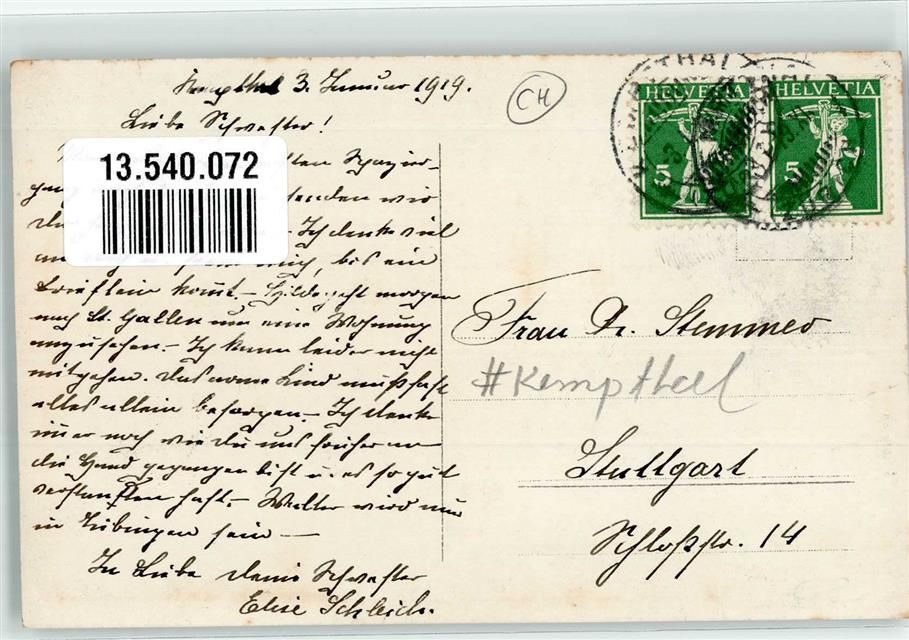 Kempthal 3. Januar 1919.
CH
Liebe Schwester!
13.540.072
ten Spazier-
gang senden wir
Ich denke viel
mich, bis ein
Brieflein kommt. – Hilde geht morgen
nach St. Gallen um eine Wohnung
anzusehen. – Ich kann leider nicht
mitgehen. Das arme Kind muß fast
alles allein besorgen. – Ich denke
immer noch wie du uns früher an
die Hand gegangen bist u. es so gut
verstanden hast. – Walter wird nun
in Tübingen sein –
In Liebe deine Schwester
Elise Schleich.
HELVETIA
5
HELVETIA
5
Frau Dr. Stemmer
#Kemptheel
Stuttgart
Schloßstr. 14